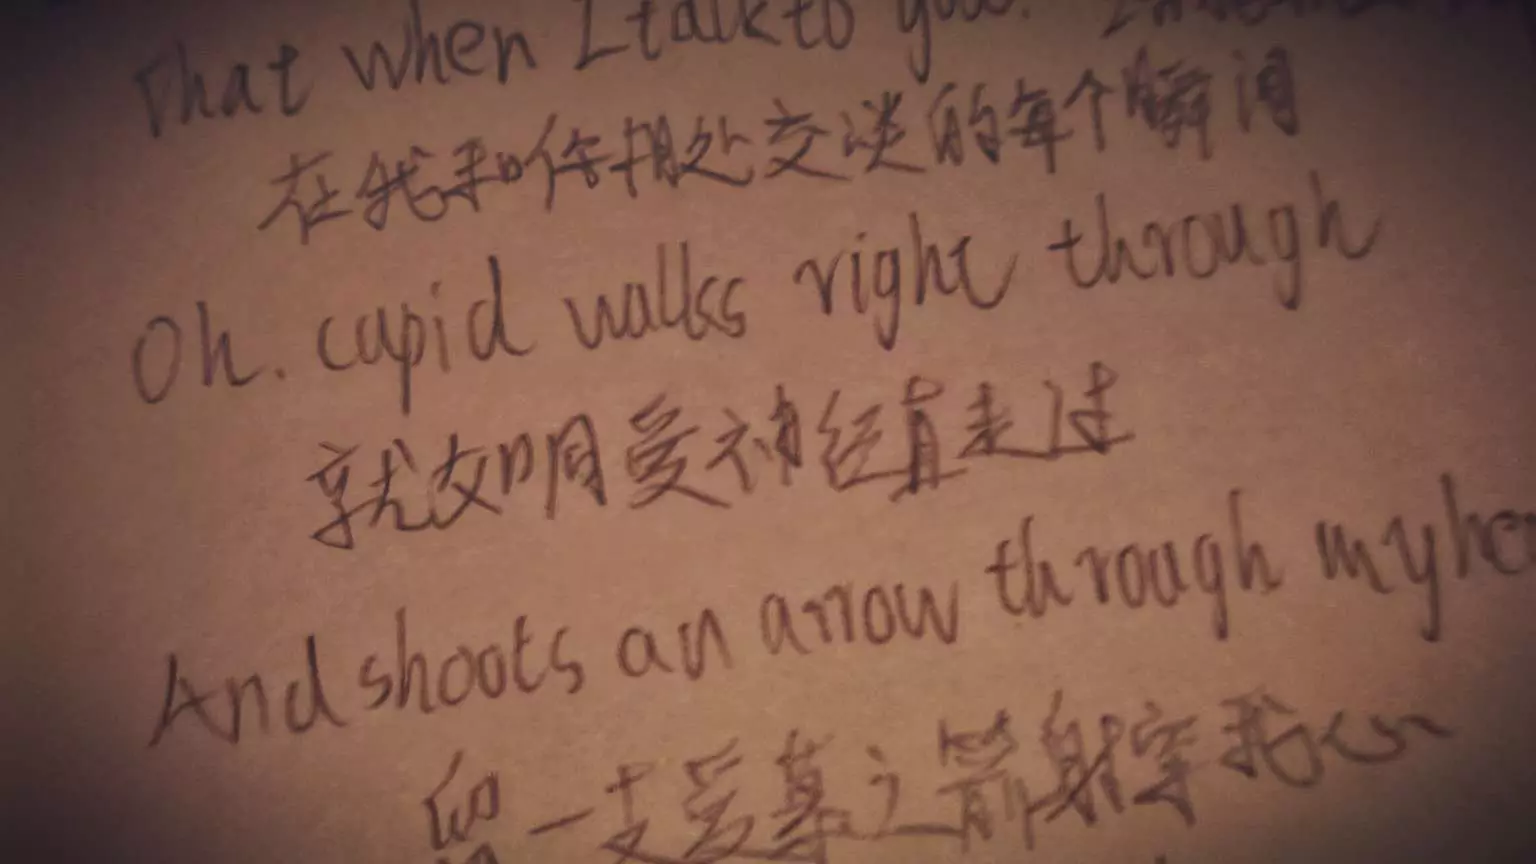 That when I talk to you.
在我和你相处交谈的每个瞬间
Oh. cupid walks right through
就如同爱神经直走过
And shoots an arrow through my
留一支爱慕之箭射穿我心